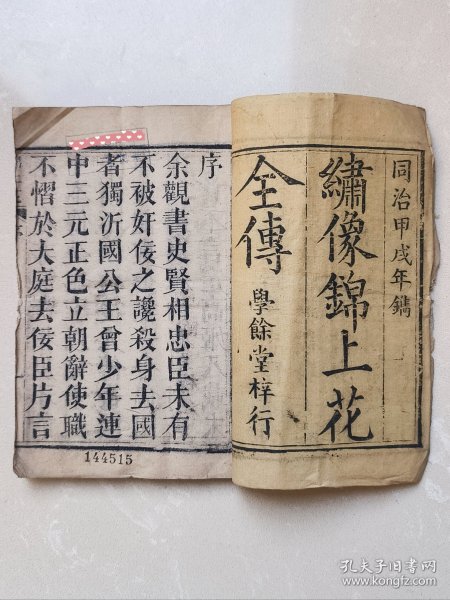 同治甲戌年鐫
繡像錦上花
全傳
學餘堂梓行
序
余觀書史賢相忠臣未有
不被奸佞之讒殺身去國
者獨沂國公王曾少年連
中三元正色立朝辭使職
不慴於大庭去佞臣片言
144515
孔夫子旧书网
www.kongfz.com